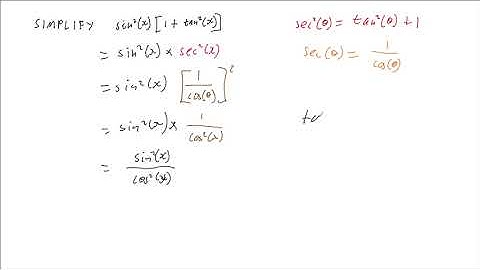 SIMPLIFY sin²(x)[1 + tan²(x)]
= sin²(x) × sec²(x)
= sin²(x) [1/cos(θ)]²
= sin²(x) × 1/cos²(x)
= sin²(x)/cos²(x)
sec²(θ) = tan²(θ) + 1
sec(θ) = 1/cos(θ)